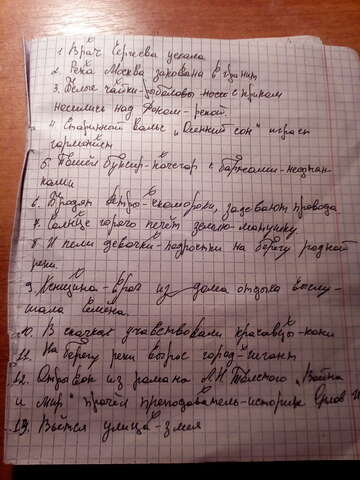 1 Врач Сергеева уехала
2. Река Москва закована в гранит
3. Белые чайки-рыболовы носо с криком
носились над Доном-рекой.
4 Старинный вальс „Осенний сон" играет
гармонист
5 Пошёл буксир-кочегар с баржами-
6. Бродят ветры-скоморохи, задевают провода
7. Солнце горячо печёт землю-матушку.
8. И пели девочки-подростки на берегу родной
реки.
9 Женщина-врач из дома отдыха выслу-
шала Семёна.
10. В скачках участвовали красавцы-кони
11. На берегу реки вырос город-гигант
12. Отрывок из романа Л.Н Толстого „Война
и мир" прочёл преподаватель-историк Орлов
13. Вьётся улица-змея